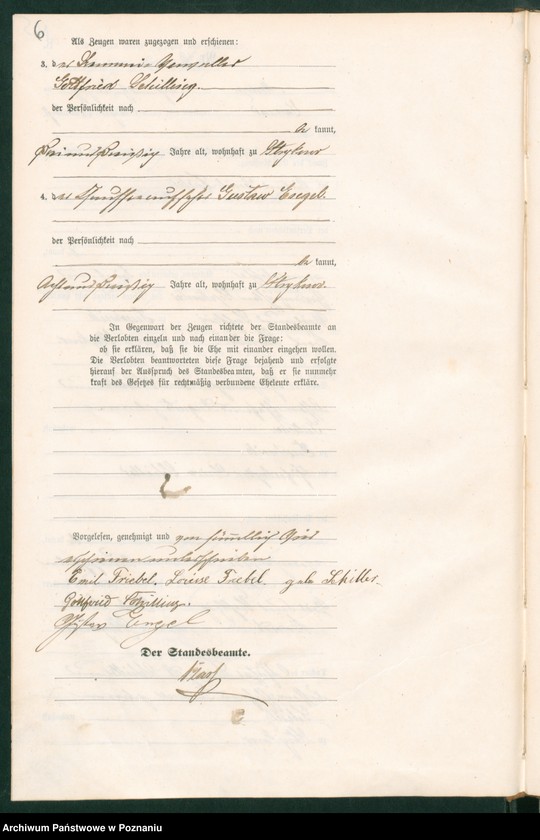 6
Als Zeugen waren zugezogen und erschienen:
3. der
Gottfried Schilling.
der Persönlichkeit nach
be kannt,
Jahre alt, wohnhaft zu
4. der Gustav Engel.
der Persönlichkeit nach
be kannt,
acht und dreißig Jahre alt, wohnhaft zu
In Gegenwart der Zeugen richtete der Standesbeamte an
die Verlobten einzeln und nach einander die Frage:
ob sie erklären, daß sie die Ehe mit einander eingehen wollen.
Die Verlobten beantworteten diese Frage bejahend und erfolgte
hierauf der Ausspruch des Standesbeamten, daß er sie nunmehr
kraft des Gesetzes für rechtmäßig verbundene Eheleute erkläre.
Vorgelesen, genehmigt und von sämmtlich
erschienenen unterschrieben
Emil Triebel. Louise Triebel geb. Schiller.
Gottfried Schilling.
Gustav Engel
Der Standesbeamte.
Archiwum Państwowe w Poznaniu